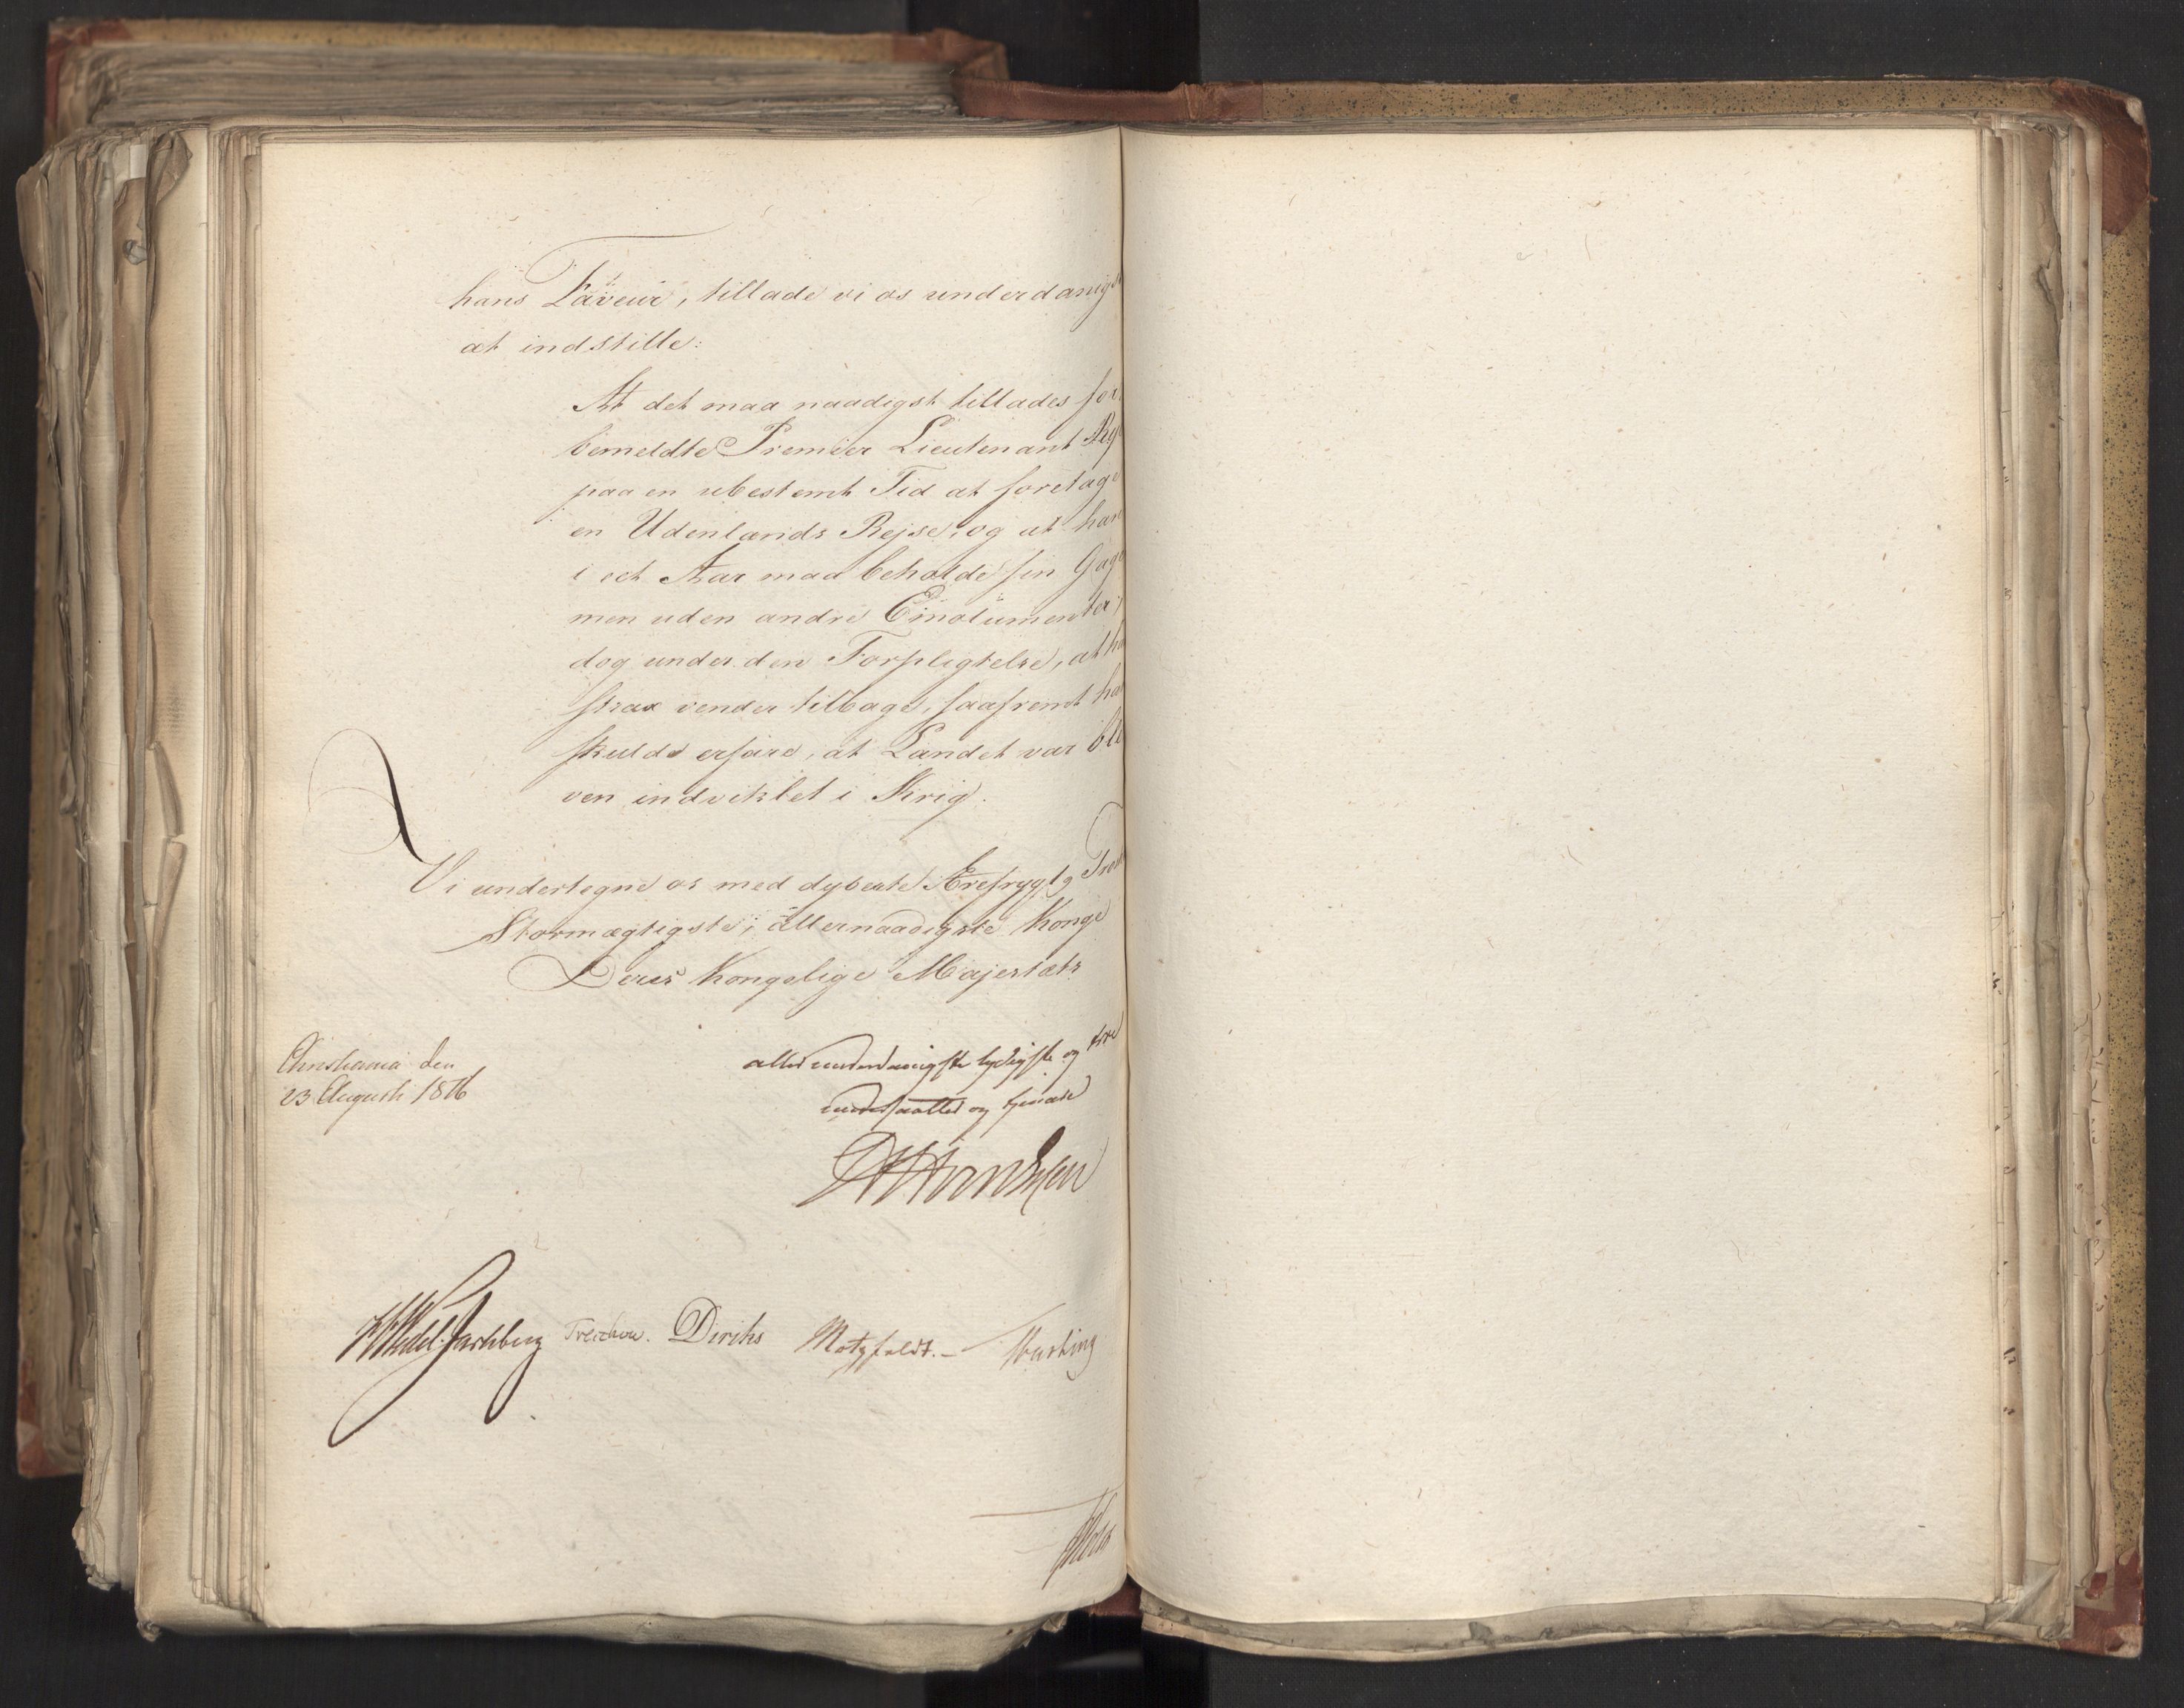 hans Faveur, tillade vi os underdanigst
at indstille:
At det maa naadigst tillades for
bemeldte Premier Lieutenant
paa en ubestemt Tid at foretage
en Udenlands Rejse, og at han
i eet Aar maa beholde sin Gage
men uden andre Emolumenter;
dog under den Forpligtelse, at ha
strax vender tilbage, saafremt ha
skulde erfare, at Landet var ble
ven indviklet i Krig.
Vi undertegne os med dybeste Ærefrygt og
Stormægtigste, allernaadigste Konge
Deres Kongelige Majestæts
Christiania den
23 August 1816
allerunderdanigste lydigste og troe
undersaatter og tjenere
Wedel Jarlsberg Treschow. Diriks Motzfeldt. –